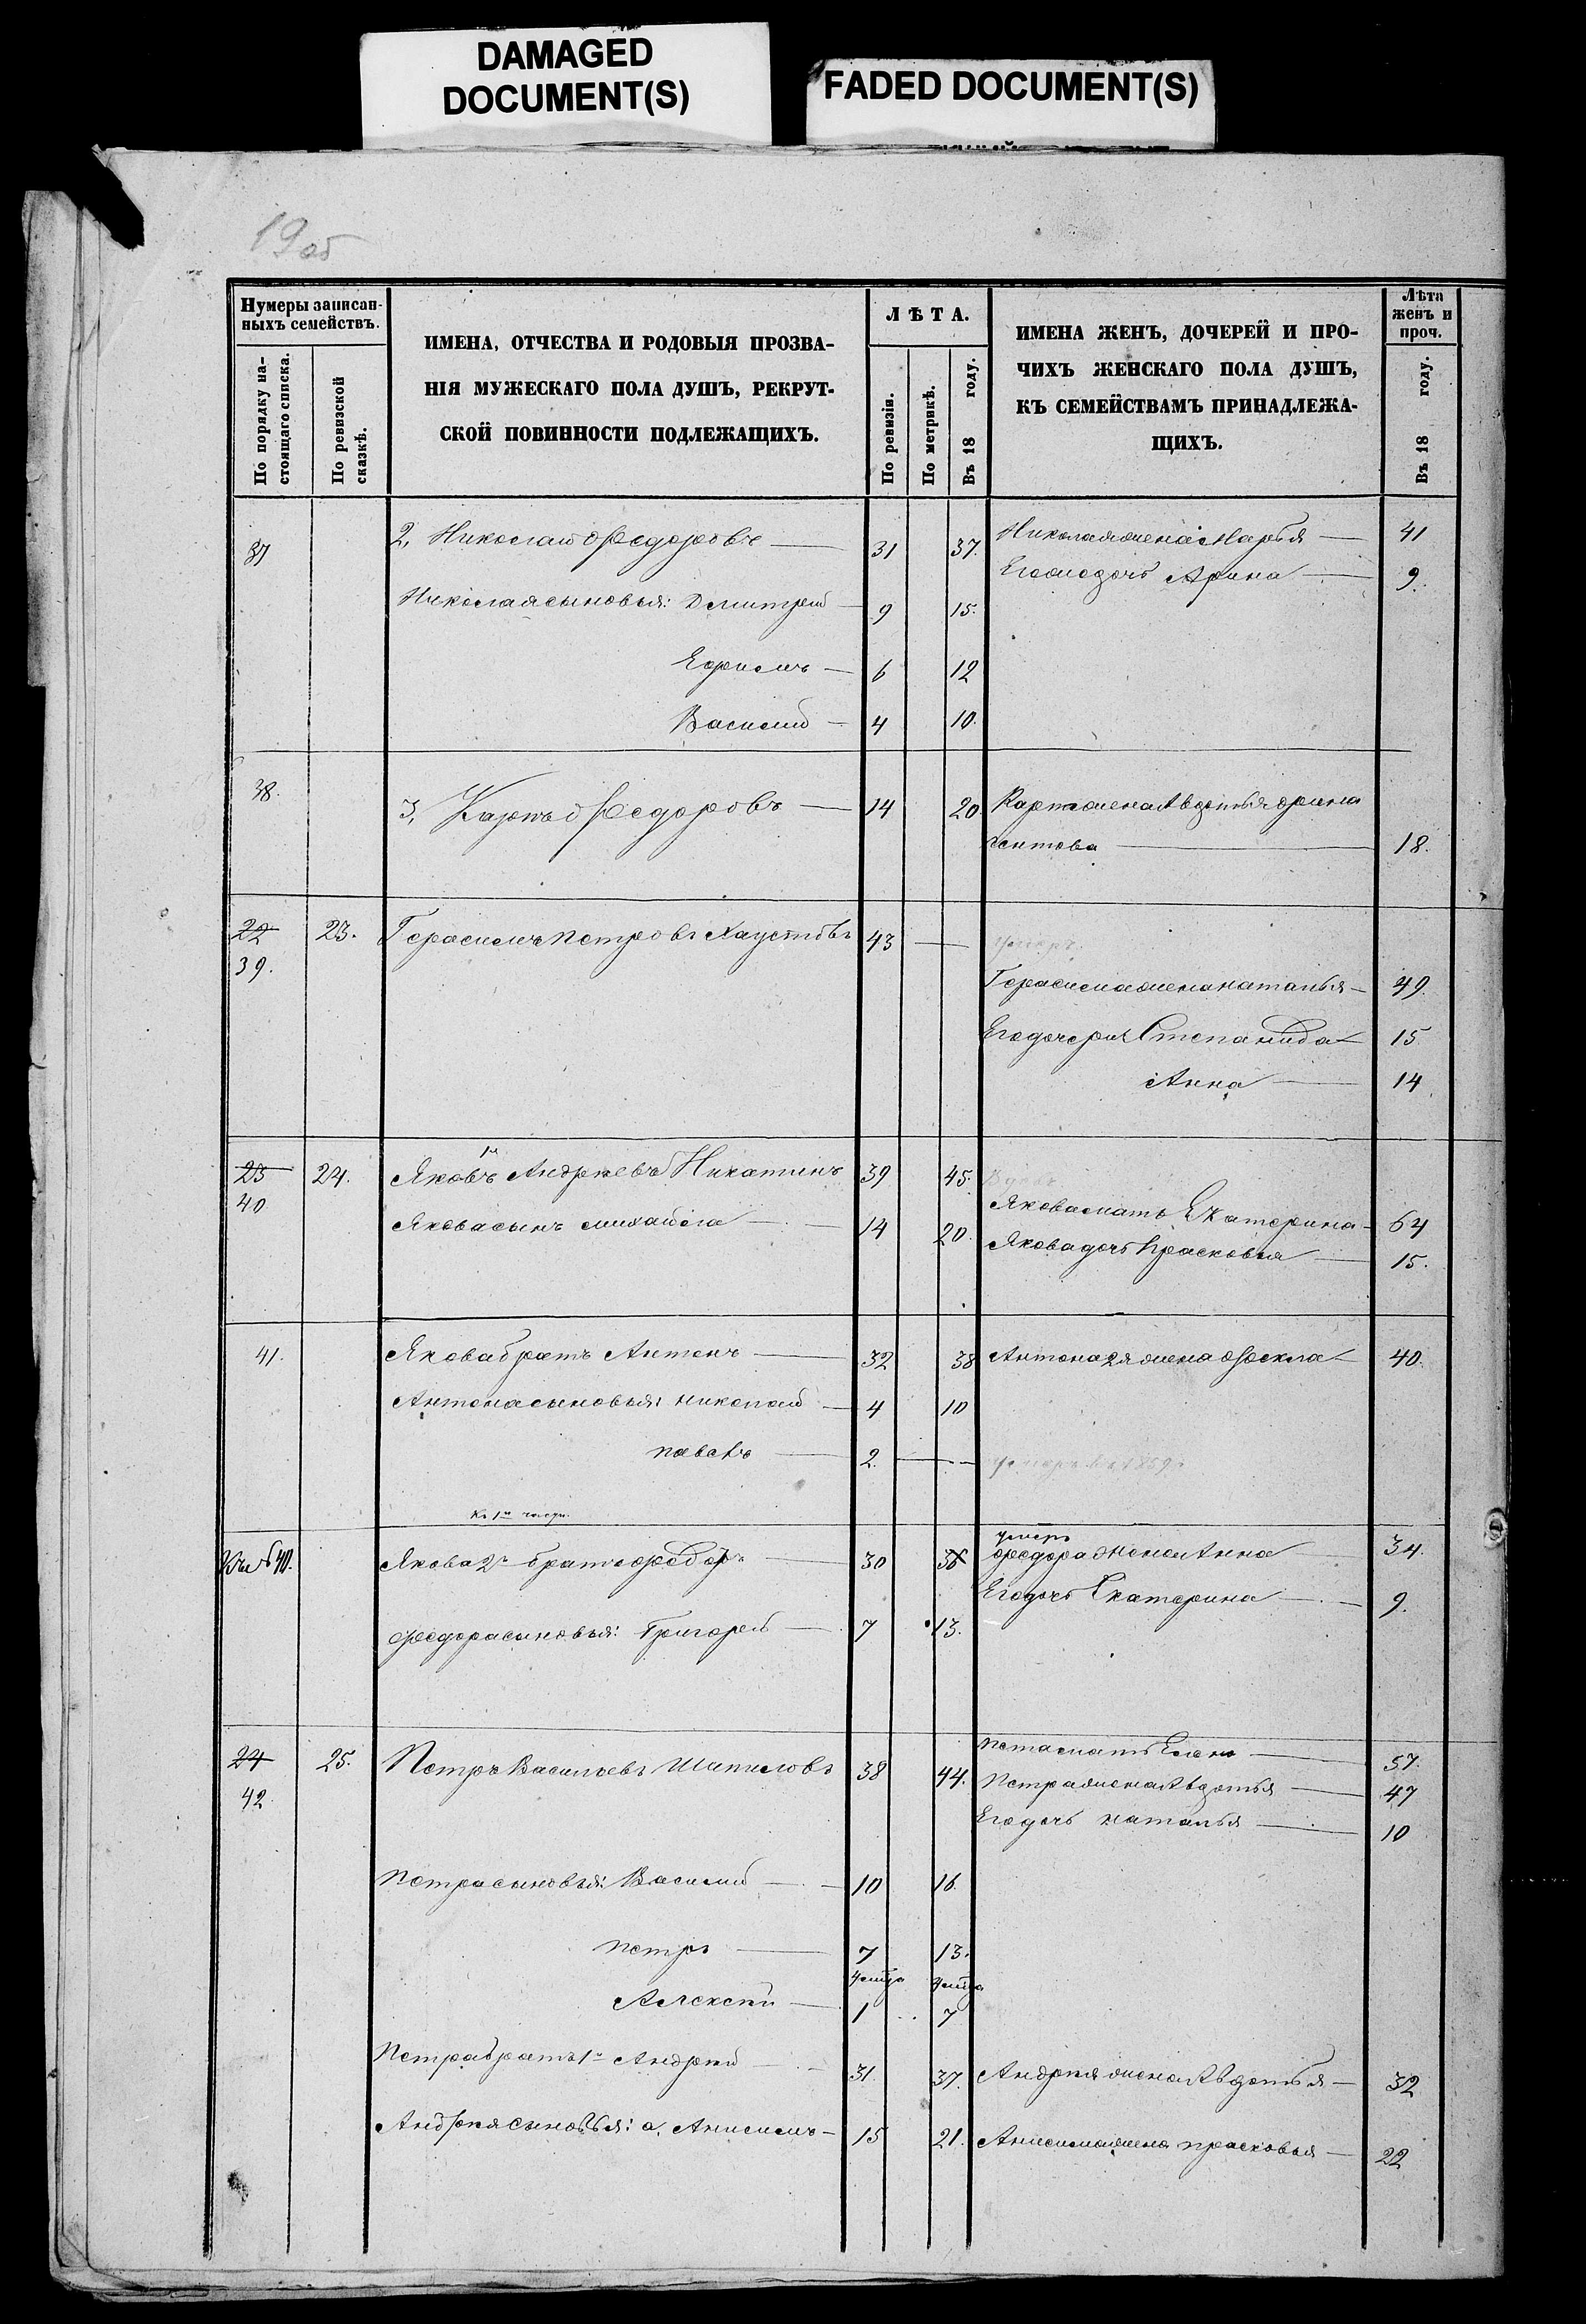 DAMAGED
DOCUMENT(S)
FADED DOCUMENT(S)
19 об
Нумеры записан-
ныхъ семействъ.
По порядку на-
стоящаго списка.
По ревизской
сказкѣ.
ИМЕНА, ОТЧЕСТВА И РОДОВЫЯ ПРОЗВА-
НІЯ МУЖЕСКАГО ПОЛА ДУШЪ, РЕКРУТ-
СКОЙ ПОВИННОСТИ ПОДЛЕЖАЩИХЪ.
ЛѢТА.
По ревизіи.
По метрикѣ.
Въ 18 году.
ИМЕНА ЖЕНЪ, ДОЧЕРЕЙ И ПРО-
ЧИХЪ ЖЕНСКАГО ПОЛА ДУШЪ,
КЪ СЕМЕЙСТВАМЪ ПРИНАДЛЕЖА-
ЩИХЪ.
Лѣта
женъ и
проч.
Въ 18 году.
37 2, Николай Федоровъ — 31 37. Николая жена Марья — 41
Его дочь Арина — 9.
Николая сыновья: Дмитрей — 9 15.
Ефимъ — 6 12
Василий — 4 10.
38. 3, Карпъ Федоровъ — 14 20 Карпа жена Авдотья
18.
22 23. Герасимъ Петровъ Хаустовъ 43 — умеръ
39.
Герасима жена наталья — 49.
Его дочери Степанида — 15
Анна — 14
1й
23 24. Яковъ Андреевъ Никитинъ 39 45.
40 Якова мать Екатерина — 64
Якова сынъ михайла — 14 20. Якова дочь Прасковья — 15.
41. Якова братъ Антонъ — 32 38 Антона 2я жена Фекла — 40.
Антона сыновья: николай — 4 10
павелъ — 2. — умеръ въ 1859
Къ 1й части.
умеръ
Къ № 40. Якова 2й братъ Федоръ — 30 36 Федора жена Анна — 34.
Его дочь Екатерина — 9.
Федора сыновья: Григорей — 7 13.
24 25. Петръ Васильевъ Шатиловъ 38 44. Петра мать Елена — 57.
42. Петра жена Авдотья — 47
Его дочь наталья — 10
Петра сыновья: Василий — 10 16.
петръ — 7 13.
Алексей — 1 7
Петра братъ 1й Андрей — 31. 37. Андрея жена Авдотья — 32
Андрея сыновья: а, Анисимъ — 15 21. Анисима жена прасковья — 22